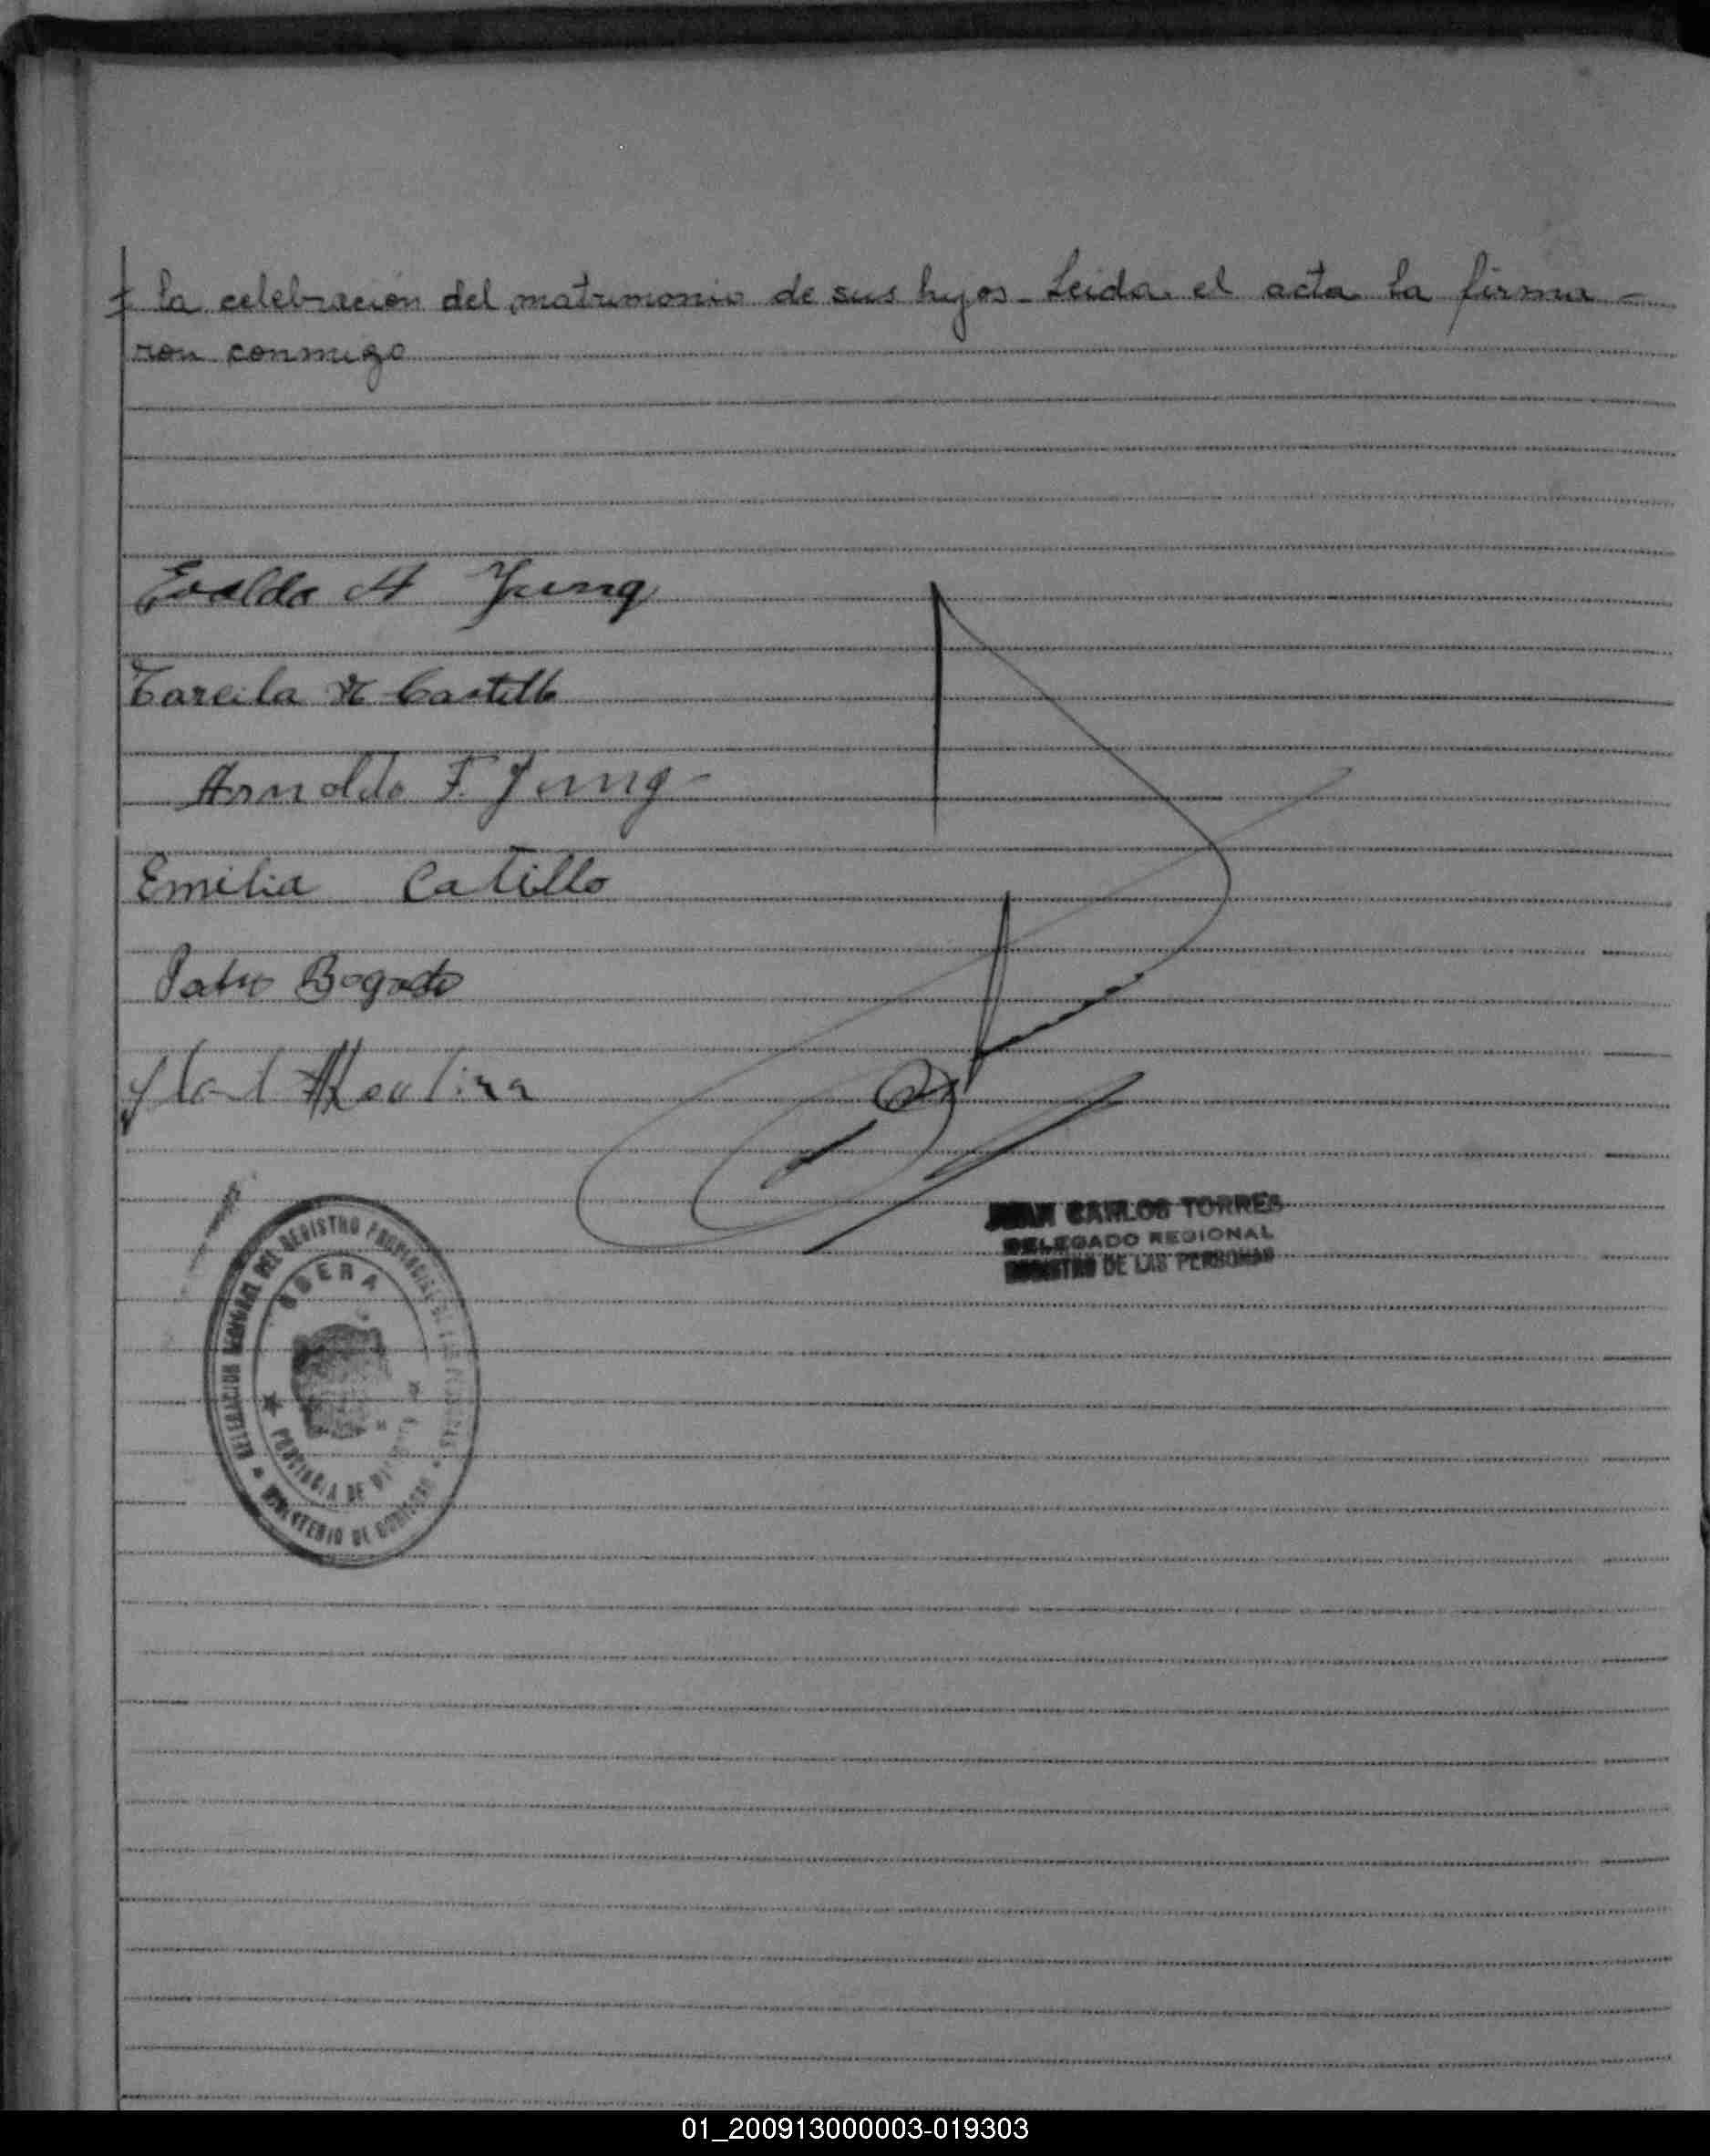 la celebración del matrimonio de sus hijos - Leida el acta la firma -
ron conmigo
Evaldo H Jung
Tarcila R Castillo
Arnoldo F. Jung
Emilia Catillo
Bogado
JUAN CARLOS TORRES
DELEGADO REGIONAL
REGISTRO DE LAS PERSONAS
DELEGACION REGIONAL DEL REGISTRO PROVINCIAL DE LAS PERSONAS
OBERA
PROVINCIA DE MISIONES
MINISTERIO DE GOBIERNO
01_200913000003-019303